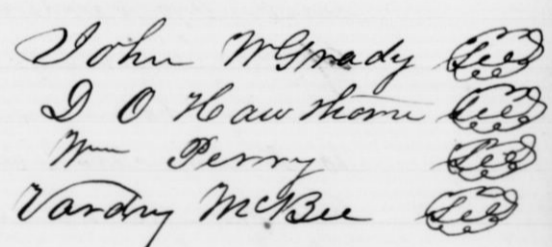 John W Grady Seal
D O Hawthorn Seal
Wm Perry Seal
Vardry McBee Seal